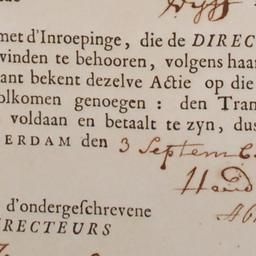 met d'Inroepinge, die de DIREC
vinden te behooren, volgens haar
ant bekent dezelve Actie op die
olkomen genoegen: den Tran
voldaan en betaalt te zyn, dus
ERDAM den 3 Septemb
d'ondergeschrevene
IRECTEURS